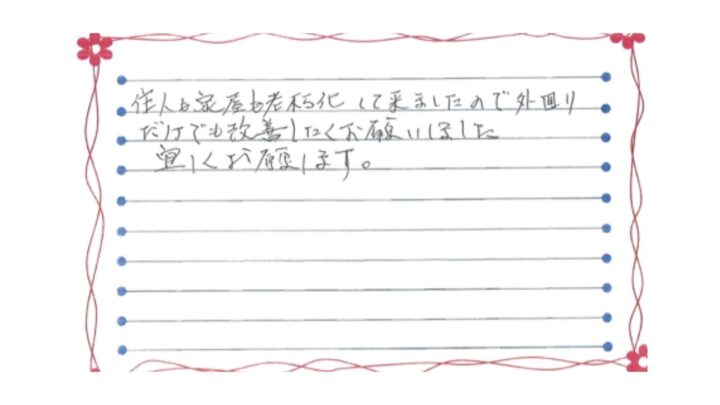 住人も家屋も老朽化して来ましたので外回り
だけでも改善したくお願いしました
宜しくお願します。